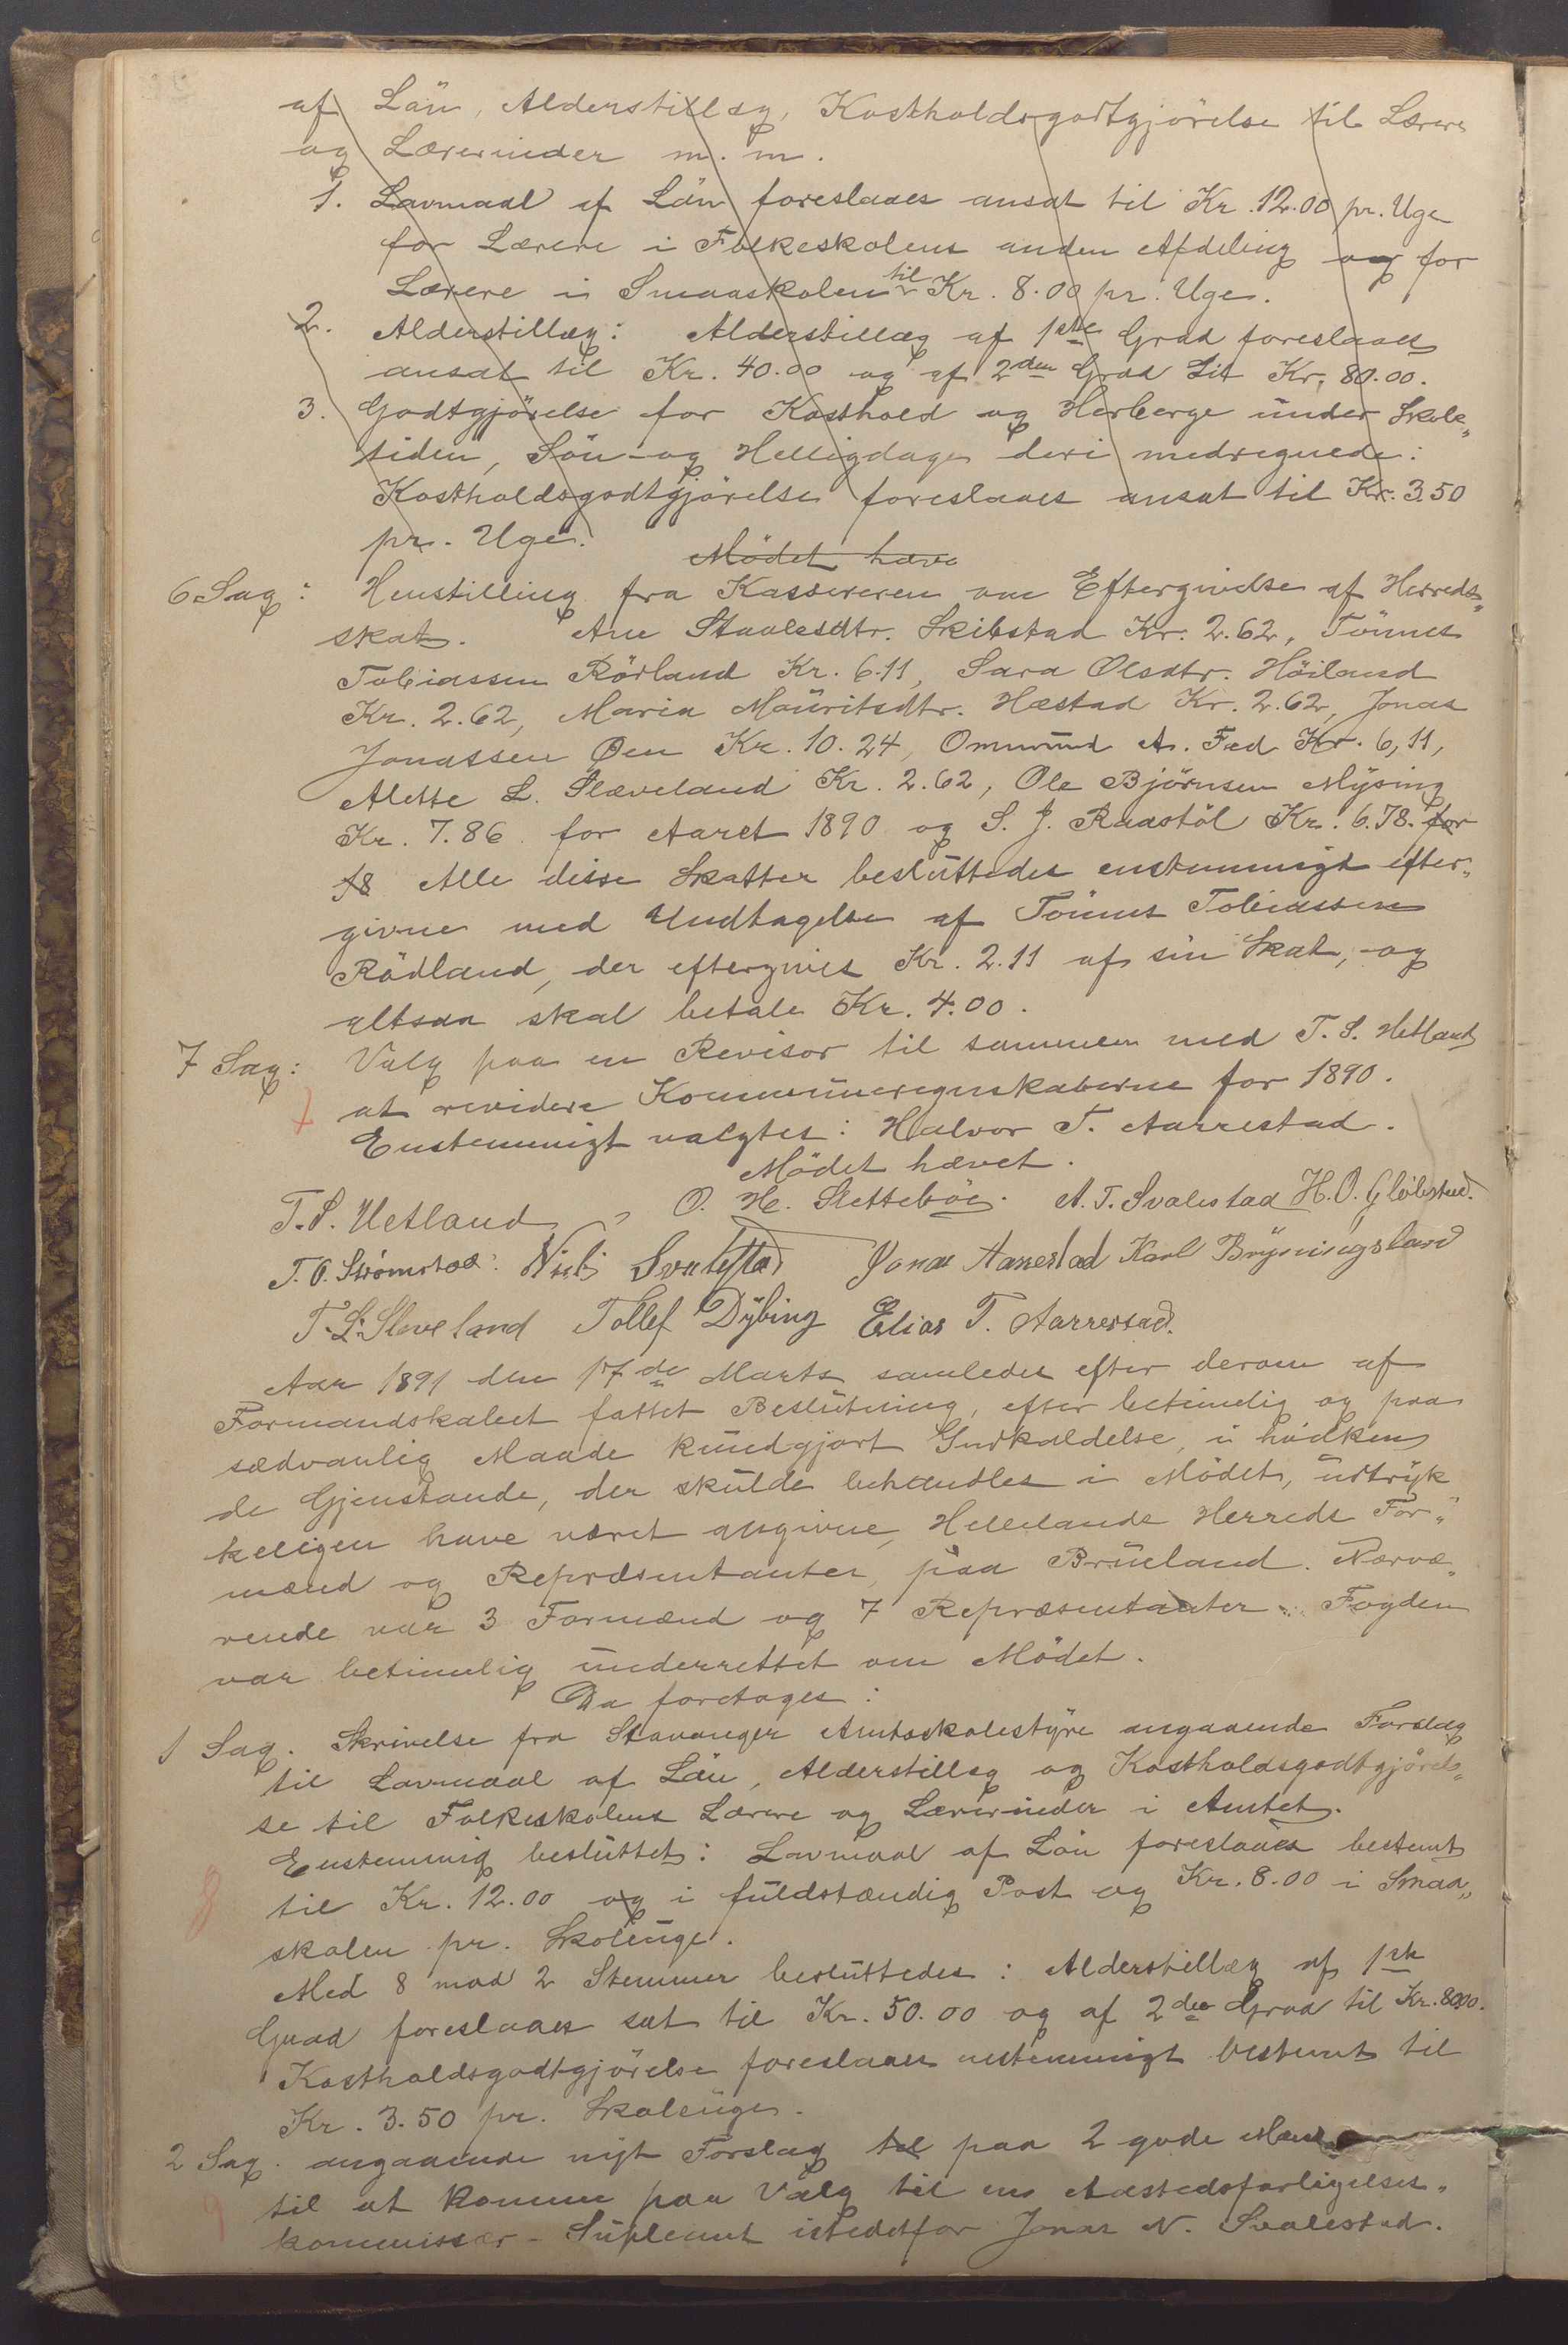 af Løn, Alderstillæg, Kostholdsgodtgjörelse til Lærere
og Lærerinder m. m.
1. Lavmaal af Lön foreslaaes ansat til Kr. 12.00 pr. Uge
for Lærere i Folkeskolens anden Afdeling og for
Lærere i Smaaskolen til Kr. 8.00 pr. Uge.
2. Alderstillæg: Alderstillæg af 1ste Grad foreslaaes
ansat til Kr. 40.00 og af 2den Grad til Kr. 80.00.
3. Godtgjörelse for Kosthold og Herberge under Skole„
tiden, Sön- og Helligdage deri medregnede:
Kostholdsgodtgjörelse foreslaaes ansat til Kr. 3.50
pr. Uge. Mödet hæve
6 Sag: Henstilling fra Kassereren om Eftergivelse af Herreds„
skat. Ane Staalesdtr. Skibstad Kr. 2.62, Tönnes
Tobiassen Rödland Kr. 6.11, Sara Olsdtr. Höiland
Kr. 2.62, Maria Mauritsdtr. Hæstad Kr. 2.62, Jonas
Jonassen Øen Kr. 10.24, Ommund A. Fed Kr. 6,11,
Alette L. Slæveland Kr. 2.62, Ole Björnsen Mysing
Kr. 7.86 for Aaret 1890 og S. J. Raastöl Kr. 6.78. for
18 Alle disse Skatter besluttedes enstemmigt efter„
givne med Undtagelse af Tönnes Tobiassen
Rödland, der eftergives Kr. 2.11 af sin Skat, og
altsaa skal betale Kr. 4.00.
7 Sag: Valg paa en Revisor til sammen med T. S. Hetland
at revidere Kommuneregnskaberne for 1890.
Enstemmigt valgtes: Halvor T. Aarrestad.
Mödet hævet.
T. S. Hetland, O. H. Sletteböe. A. T. Svalestad H. O. Gløbstad.
T. O. Strømstad. Niels Svalestad Jonas Aarrestad Karl Bryningsland
T. L. Sleveland Tollef Dybing Elias T. Aarrestad.
Aar 1891 den 17de Marts samledes efter derom af
Formandskabet fattet Beslutning, efter betimelig og paa
sædvanlig Maade kundgjort Indkaldelse, i hvilken
de Gjenstande, der skulde behandles i Mödet, udtryk
keligen have været angivne, Hellelands Herreds For„
mænd og Repræsentanter, paa Brueland. Nærvæ„
rende var 3 Formænd og 7 Repræsentanter. Fogden
var betimelig underrettet om Mödet.
Da foretoges:
1 Sag. Skrivelse fra Stavanger Amtsskolestyre angaaende Forslag
til Lavmaal af Lön, Alderstillæg og Kostholdsgodtgjörel„
se til Folkeskolens Lærere og Lærerinder i Amtet.
Enstemmig besluttet: Lavmaal af Lön foreslaaes bestemt
til Kr. 12.00 og i fuldstændig Post og Kr. 8.00 i Smaa„
skolen pr. Skoleuge.
8
Med 8 mod 2 Stemmer besluttedes: Alderstillæg af 1ste
Grad foreslaaes sat til Kr. 50.00 og af 2den Grad til Kr. 80.00.
Kostholdsgodtgjörelse foreslaaes enstemmigt bestemt til
Kr. 3.50 pr. Skoleuge.
2 Sag. angaaende nyt Forslag til paa 2 gode Mænd
til at komme paa Valg til en Aastedsforligelses„
9
kommissær-Suplement istedetfor Jonas N. Svalestad.